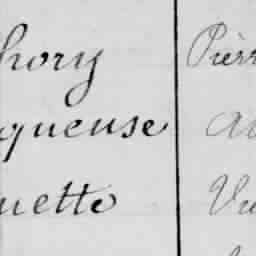 hory Pierr
queuse
uette